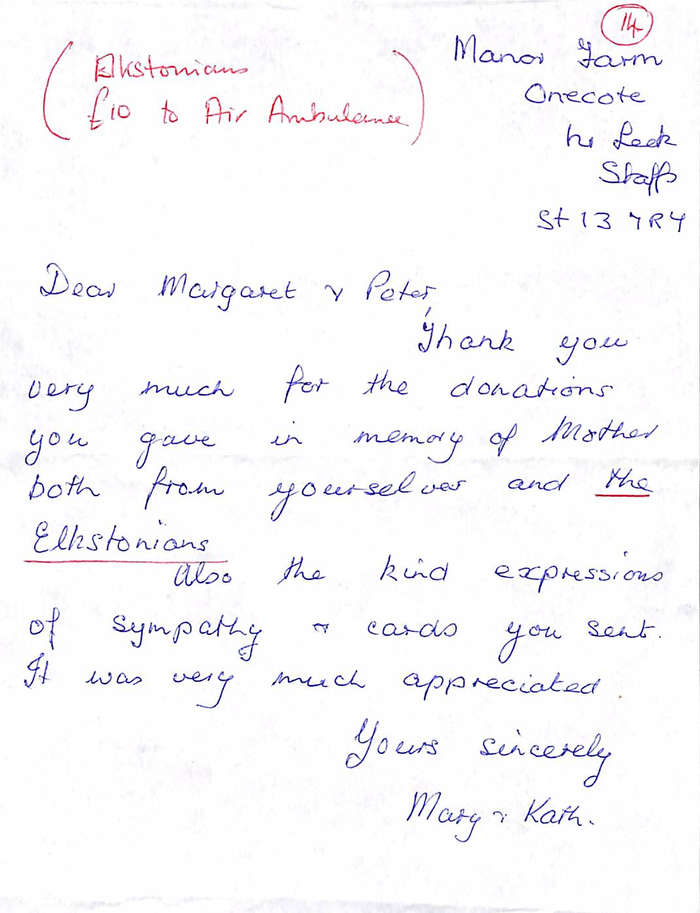 14
(Elkstonians
£10 to Air Ambulance)
Manor Farm
Onecote
Nr Leek
Staffs
St13 7RY
Dear Margaret & Peter,
Thank you
very much for the donations
you gave in memory of Mother
both from yourselves and the
Elkstonians
Also the kind expressions
of sympathy & cards you sent.
It was very much appreciated.
Yours sincerely
Mary & Kath.